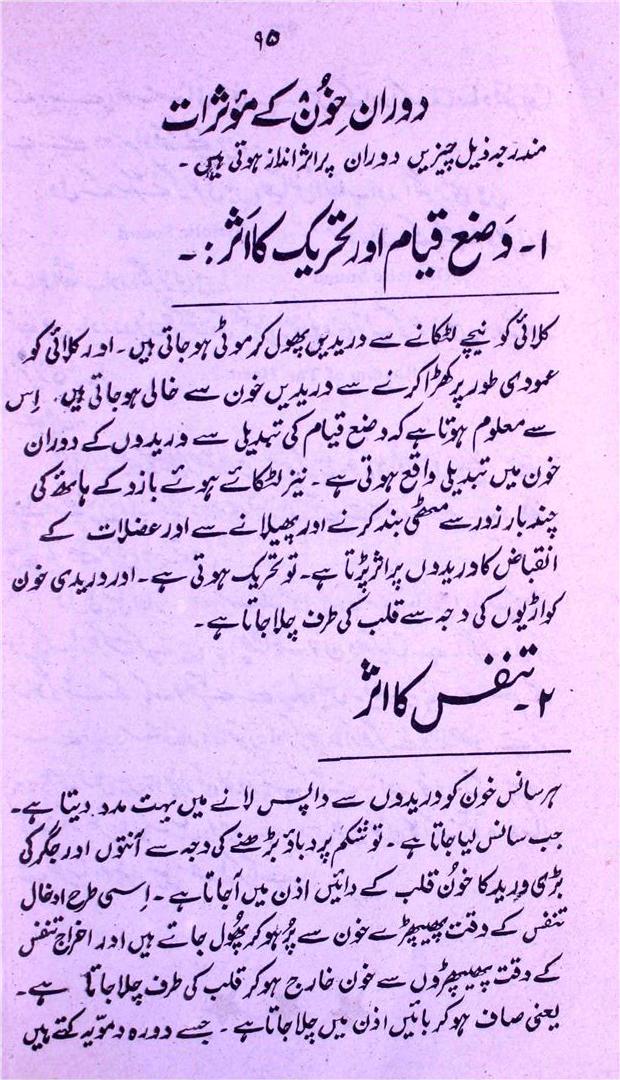 ۹۵
دورانِ خُون کے مؤثرات
مندرجہ ذیل چیزیں دوران پر اثر انداز ہوتی ہیں۔
۱۔ وَضع قیام اور تحریک کا اَثر :۔
کلائی کو نیچے لٹکانے سے وریدیں پھول کر موٹی ہو جاتی ہیں۔ اور کلائی کو
عمودی طور پر کھڑا کرنے سے وریدیں خون سے خالی ہو جاتی ہیں۔ اِس
سے معلوم ہوتا ہے کہ وضع قیام کی تبدیلی سے وریدوں کے دوران
خون میں تبدیلی واقع ہوتی ہے۔ نیز لٹکائے ہوئے بازو کے ہاتھ کی
چند بار زور سے مٹھی بند کرنے اور پھیلانے سے اور عضلات کے
انقباض کا وریدوں پر اثر پڑتا ہے۔ تو تحریک ہوتی ہے۔ اور وریدی خون
کواڑیوں کی وجہ سے قلب کی طرف چلا جاتا ہے۔
۲۔ تنفس کا اثر
ہر سانس خون کو وریدوں سے واپس لانے میں بہت مدد دیتا ہے۔
جب سانس لیا جاتا ہے۔ تو شکم پر دباؤ بڑھنے کی وجہ سے آنتوں اور جگر کی
بڑی ورید کا خُون قلب کے دائیں اذن میں آ جاتا ہے۔ اِسی طرح ادخال
تنفس کے وقت پھیپھڑے خون سے پُر ہو کر پُھول جاتے ہیں اور اخراج تنفس
کے وقت پھیپھڑوں سے خون خارج ہو کر قلب کی طرف چلا جاتا ہے۔
یعنی صاف ہو کر بائیں اذن میں چلا جاتا ہے۔ جسے دورہ دمویہ کہتے ہیں